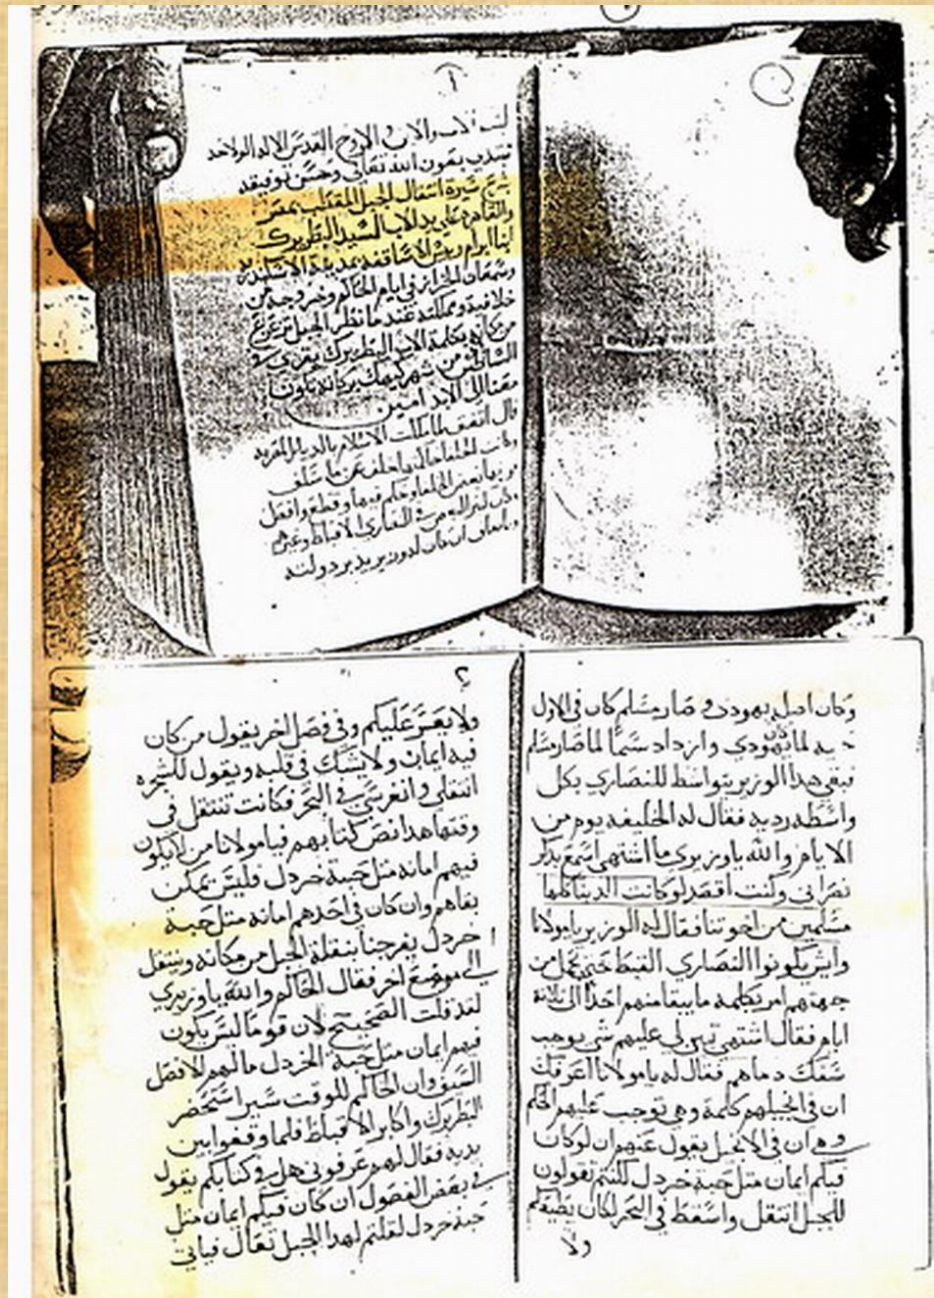 ١
بسم الاب والابن والروح القدس الاله الواحد
نبتدي بعون الله تعالى وحسن توفيقه
بشرح سيرة انتقال الجبل المقطب بمصر
والقاهره على يد الاب السيد البطريرك
انبا ابرام ريس الاساقفه بمدينة الاسكندريه
وسمعان الخراز في ايام الحاكم وخروجه من
خلافته ومملكته عند ما نظر الجبل تزعزع
من مكانه بكلمة الاب البطريرك يقرى في
السادس من شهر كيهك بركاته تكون
معنا الى الابد امين
قال اتفق لما ملكت الاسلام بالديار المصريه
وكانت الخلفا
بعض الخلفا وحكم فيها وقطع وافعل
النصارى الاقباط وغيرهم
ان كان له وزير يدبر دولته
وكان اصله يهودي وصار مسلم كان في الاول
لما كان يهودي وازداد سما لما صار مسلم
فبقي هدا الوزير يتواسط للنصاري بكل
واسطه رديه فقال له الخليفه يوم من
الايام والله ياوزيري ما اشتهي اسمع بدكر
نصراني وكنت اقصد لو كانت الدنيا كلها
مسلمين من اخوتنا فقال له الوزير يا مولانا
وايش يكونوا النصاري القبط حتى نحمل من
جهتهم امر بكلمه ما يبقا منهم احدا الى تلاتة
ايام فقال اشتهي تبين لي عليهم شي يوجب
سفك دماهم فقال له يا مولانا اعرفك
ان في انجيلهم كلمة وهي توجب عليهم الحكم
وهي ان في الانجيل يقول عنهم ان لو كان
فيكم ايمان متل حبة خردل كنتم تقولون
للجبل انتقل واسقط في البحر لكان يطيعكم
ولا
٢
ولا يعسر عليكم وفي فصل اخر يقول من كان
فيه ايمان ولا يشك في قلبه ويقول للشجره
انتقلي وانغرسي في البحر فكانت تنتقل في
وقتها هدا نص كتابهم فيا مولانا من لا يكون
فيهم امانه متل حبة خردل فليس يمكن
بقاهم وان كان في احدهم امانه متل حبة
خردل يفرجنا بنقلة الجبل من مكانه وينتقل
الى موضع اخر فقال الحاكم والله يا وزيري
لقد قلت الصحيح لان قوما ليس يكون
فيهم ايمان متل حبة الخردل ما لهم الا فصل
السيف وان الحاكم للوقت سير استحضر
البطريرك واكابر الاقباط فلما وقفوا بين
يديه فقال لهم عرفوني هل في كتابكم يقول
في بعض الفصول ان كان فيكم ايمان متل
حبة خردل لقلتم لهدا الجبل تعال فياتي